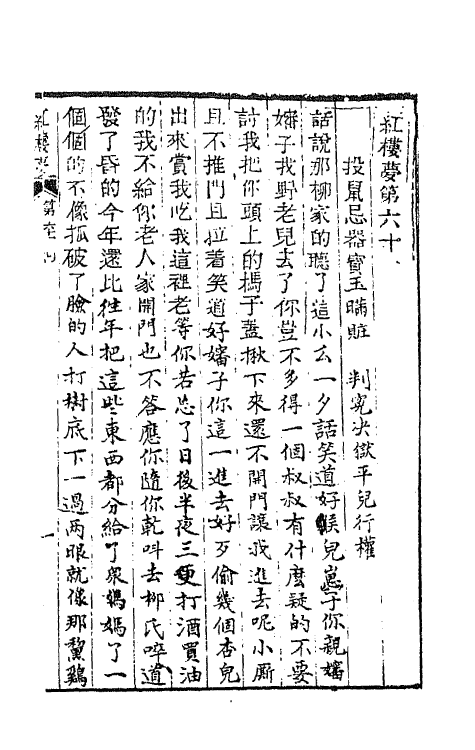 紅樓夢第六十
投鼠忌器寳玉瞞賍 判寃决獄平兒行權
話說那柳家的聽了這小么一夕話笑道好猴兒崽子你親嬸
嬸子找野老兒去了你豈不多得一個叔叔有什麼疑的不要
討我把你頭上的榪子蓋揪下來還不開門讓我進去呢小厮
且不推門且拉着笑道好嬸子你這一進去好歹偷幾個杏兒
出來賞我吃我這裡老等你若忘了日後半夜三更打酒買油
的我不給你老人家開門也不答應你隨你乾呌去柳氏啐道
發了昏的今年還比往年把這些東西都分給了衆媽媽了一
個個的不像抓破了臉的人打樹底下一過両眼就像那黧鷄
紅樓夢 第 一